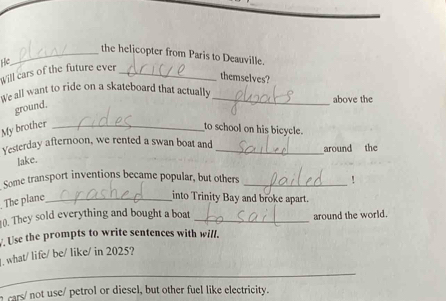 He plan the helicopter from Paris to Deauville.
Will cars of the future ever drive themselves?
We all want to ride on a skateboard that actually gloats above the
ground.
My brother rides to school on his bicycle.
Yesterday afternoon, we rented a swan boat and sailed around the
lake.
Some transport inventions became popular, but others failed !
The plane crashed into Trinity Bay and broke apart.
10. They sold everything and bought a boat to sail around the world.
Use the prompts to write sentences with will.
what/ life/ be/ like/ in 2025?
cars/ not use/ petrol or diesel, but other fuel like electricity.